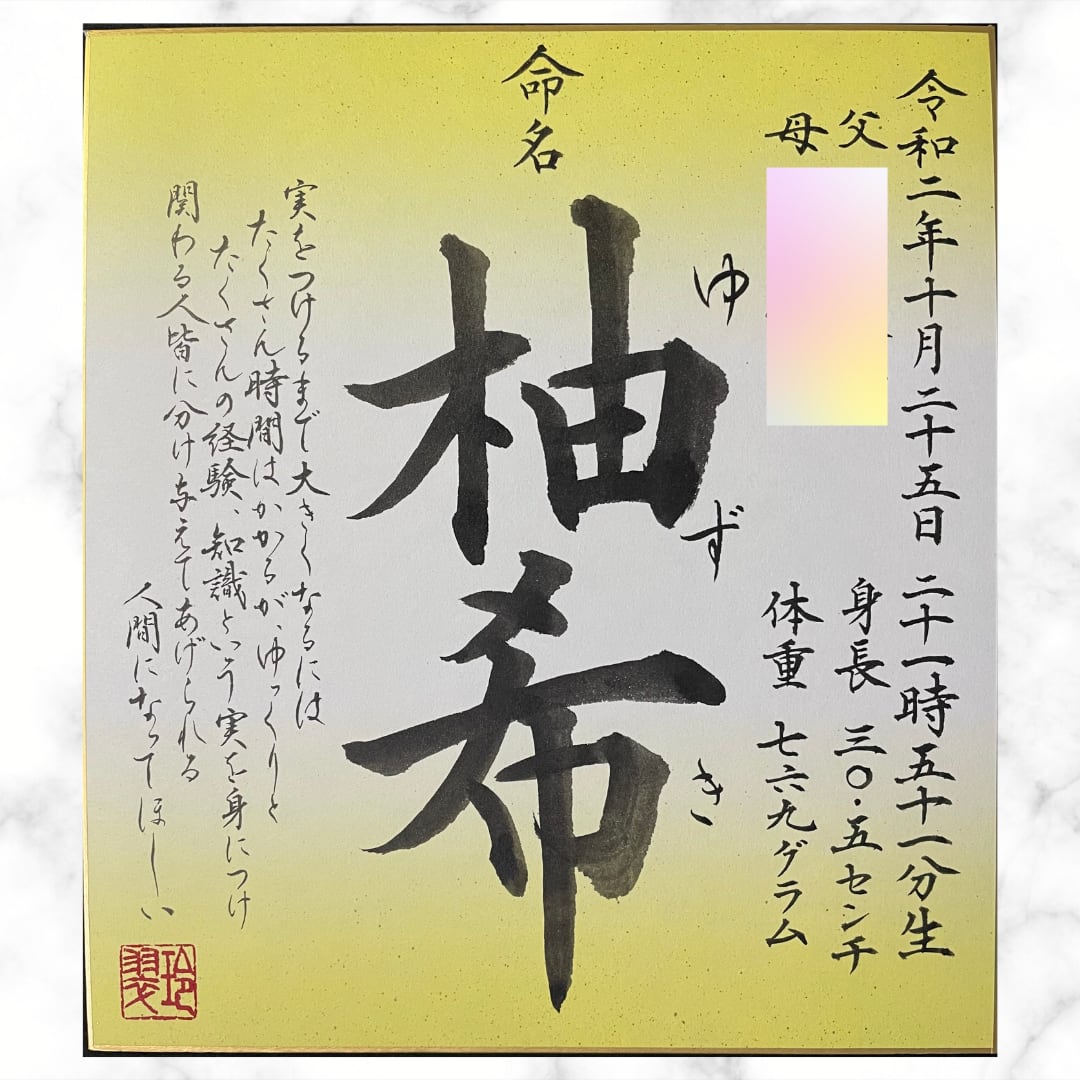 令和二年十月二十五日 二十一時五十一分生
父
母
身長 三〇・五センチ
体重 七六九グラム
命名
柚希
ゆずき
実をつけるまで大きくなるには
たくさん時間はかかるが、ゆっくりと
たくさんの経験、知識という実を身につけ
関わる人皆に分け与えてあげられる
人間になってほしい